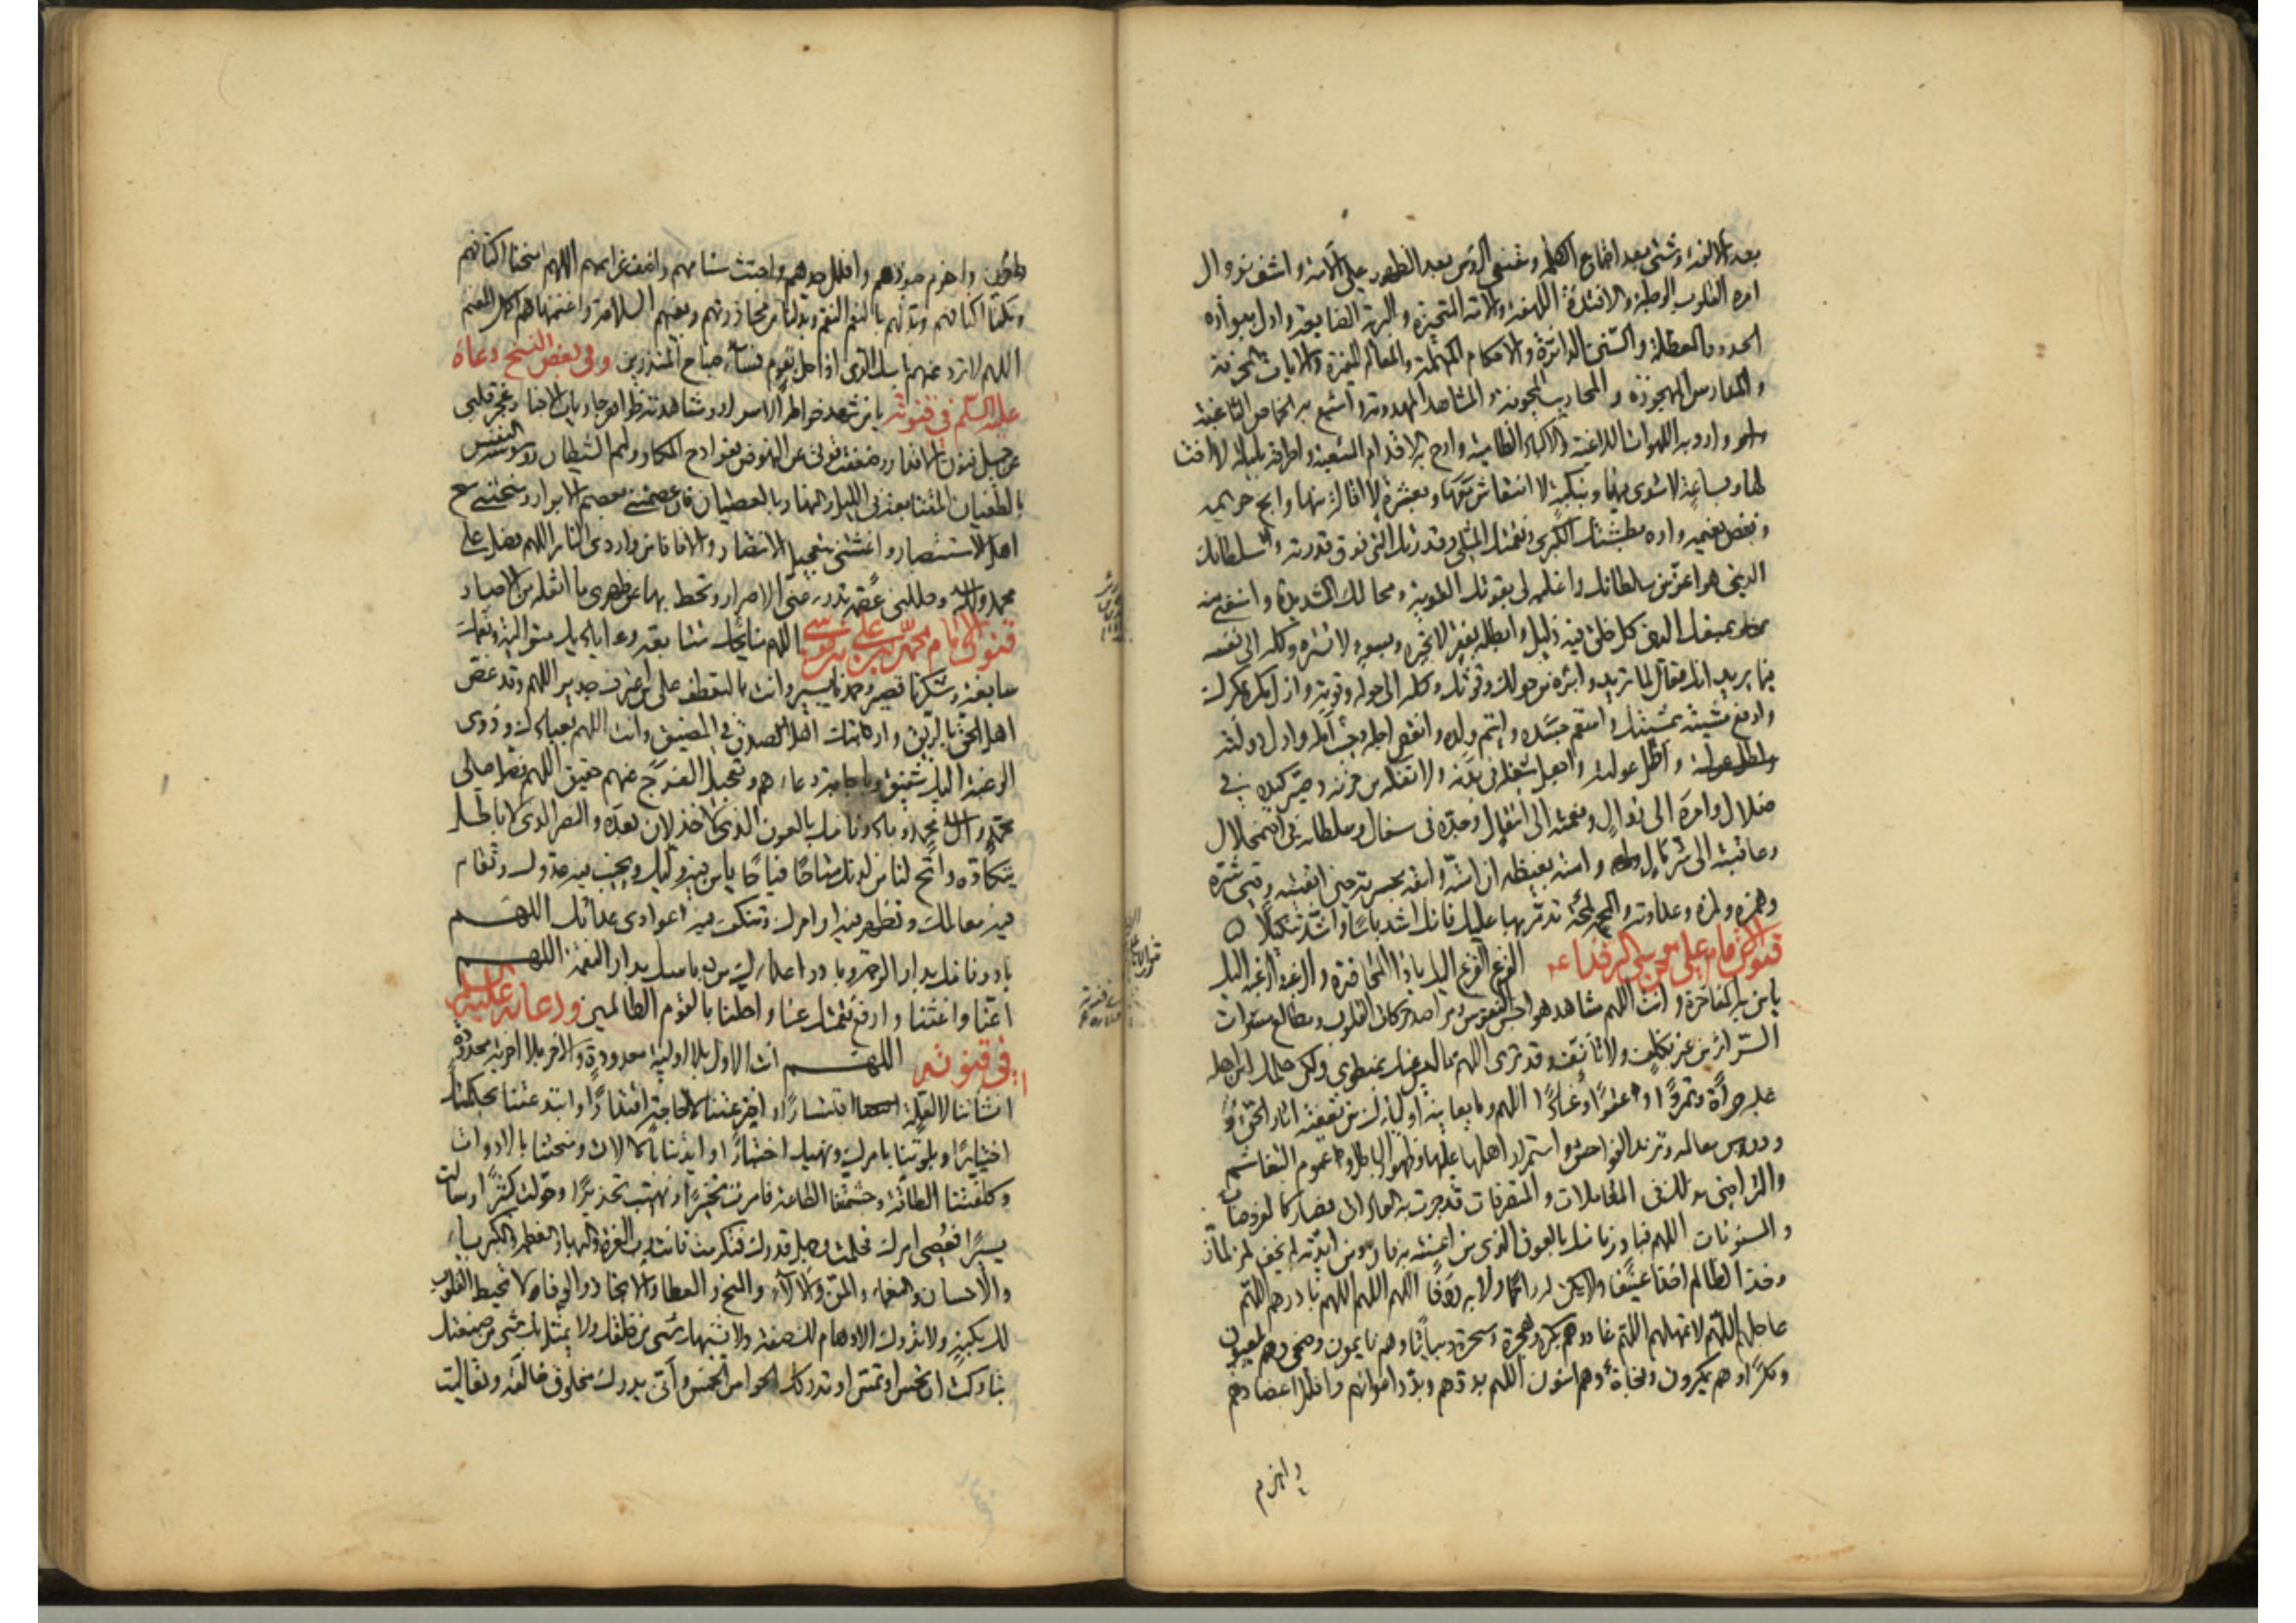 بعد الالفة وشتى بعد اجتماع الكلمة ومقنعي الرؤس بعد الظهور على الامة واشف بزوال
امره القلوب الوجلة والافئدة اللهفة والامة المتحيرة والبرية الضايعة وادل ببواره
الحدود المعطلة والسنن الداثرة والاحكام المهملة والمعالم المغيرة والايات المحرفة
والمدارس المهجورة والمحاريب المجفوة والمشاهد المهدومة واشبع به الخماص الساغبة
وارو به اللهوات اللاغبة والاكباد الظامية وارح به الاقدام المتعبة واطرقه بليلة لا اخت
لها وبساعة لا مثوى فيها وبنكبة لا انتعاش معها وبعثرة لا اقالة منها وابح حريمه
ونغص نعيمه واره بطشتك الكبرى ونقمتك المثلى وقدرتك التي فوق قدرته وسلطانك
الذي هو اعز من سلطانه واغلبه لي بقوتك القوية ومحالك الشديد وامنعني منه
بمنعك الذي كل خلق فيه ذليل وابتله بفقر لا تجبره وبسوء لا تستره وكله الى نفسه
فيما يريد انك فعال لما تريد وابرئه من حولك وقوتك وكله الى حوله وقوته وازل مكره بمكرك
وادفع مشيته بمشيتك واسقم جسده وايتم ولده وانقص اجله وخيب امله وادل دولته
واطل عولته واجعل شغله في بدنه ولا تفكه من حزنه وصير كيده في
ضلال وامره الى زوال ونعمته الى انتقال وجده في سفال وسلطانه في اضمحلال
وعاقبته الى شر مآل وامته بغيظه ان امته وابقه بحسرته حين ابقيته وقني شره
وهمزه ولمزه وعداوته والمحه لمحة تدمر بها عليه فانك اشد باسا واشد تنكيلا
قنوت الامام علي بن موسى الرضا ع الفزع الفزع اليك يا ذا المحاضرة والرغبة الرغبة اليك
يا من به المفاخرة وانت اللهم مشاهد هواجس النفوس ومراصد حركات القلوب ومطالع مسرات
السرائر من غير تكلف ولا تعسف وقد ترى اللهم ما ليس عنك بمنطوي ولكن حلمك امن اهله
عليه جراة وتمردا وعتوا وعنادا اللهم وما يعانيه اولياؤك من تعفية اثار الحق
ودروس معالمه وتزيد الفواحش واستمرار اهلها عليها وظهور الباطل وعموم التغاشم
والتراضي بذلك في المعاملات والمتصرفات قد جرت به العادات وصار كالمفروضات
والمسنونات اللهم فبادرنا منك بالعون الذي من اعنته به فاز ومن ايدته لم يخف لمز لماز
وخذ الظالم اخذا عنيفا ولا تكن له راحما ولا به رؤفا اللهم اللهم اللهم بادرهم اللهم
عاجلهم اللهم لا تمهلهم اللهم غادرهم بكرة وهجرة وسحرة وبياتا وهم نايمون وضحى وهم يلعبون
ومكرا وهم يمكرون وفجاة وهم امنون اللهم بددهم وبدد اعوانهم وافلل اعضادهم
واهزم
واهزم جنودهم وافلل حدهم واجتث سنامهم واضعف عزائمهم اللهم امنحنا اكتافهم
وملكنا اكنافهم وبدلهم بالنعم النقم وبدلنا من محاذرتهم وبغيهم السلامة واغنمناهم اكمل المغنم
اللهم لا ترد عنهم باسك الذي اذا حل بقوم فساء صباح المنذرين وفي بعض النسخ دعاؤه
عليه السلم في قنوته يا من شهد خواطر الاسرار
اهل الاستبصار واغثني بتعجيل الانتصار
محمد وآله
قنوت الامام محمد بن علي بن موسى اللهم منايحك متتابعة واياديك متوالية ونعمك
سابغة وشكرنا قصير وحمدنا يسير وانت بالتعطف على من اعترف جدير اللهم وقد غص
اهل الحق بالريق وارتبك اهل الصدق في المضيق وانت اللهم بعبادك وذوي
الرغبة اليك شفيق وباجابة دعائهم وتعجيل الفرج عنهم حقيق اللهم فصل على
محمد وآل محمد وبادرنا منك بالعون الذي لا خذلان بعده والنصر الذي لا باطل
يتكأده واتح لنا من لدنك متاحا فياحا يامن فيه وليك ويخيب فيه عدوك وتقام
فيه معالمك وتظهر فيه اوامرك وتنكف فيه عوادي عداتك اللهم
بادرنا منك بدار الرحمة وبادر اعداءك من باسك بدار النقمة اللهم
اعنا واغثنا وارفع نقمتك عنا واحلها بالقوم الظالمين ودعائه عليه السلم
في قنوته اللهم انت الاول بلا اولية معدودة والاخر بلا اخرية محدودة
انشاتنا لا لعلة اقتسارا واخترعتنا لا لحاجة اقتدارا وابتدعتنا بحكمتك
اختيارا وبلوتنا بامرك ونهيك اختبارا وايدتنا بالالات ومنحتنا بالادوات
وكلفتنا الطاقة وجشمتنا الطاعة فامرت تخييرا ونهيت تحذيرا وخولت كثيرا وسالت
يسيرا فعصي امرك فحلمت وجهل قدرك فتكرمت فانت رب العزة والبهاء والعظمة والكبرياء
والاحسان والنعماء والمن والالاء والمنح والعطاء والانجاز والوفاء لا تحيط القلوب
لك بكنه ولا تدرك الاوهام لك صفة ولا يشبهك شيء من خلقك ولا يمثل بك شيء من صنعتك
تباركت ان تحس او تمس او تدركك الحواس الخمس وانى يدرك مخلوق خالقه وتعاليت